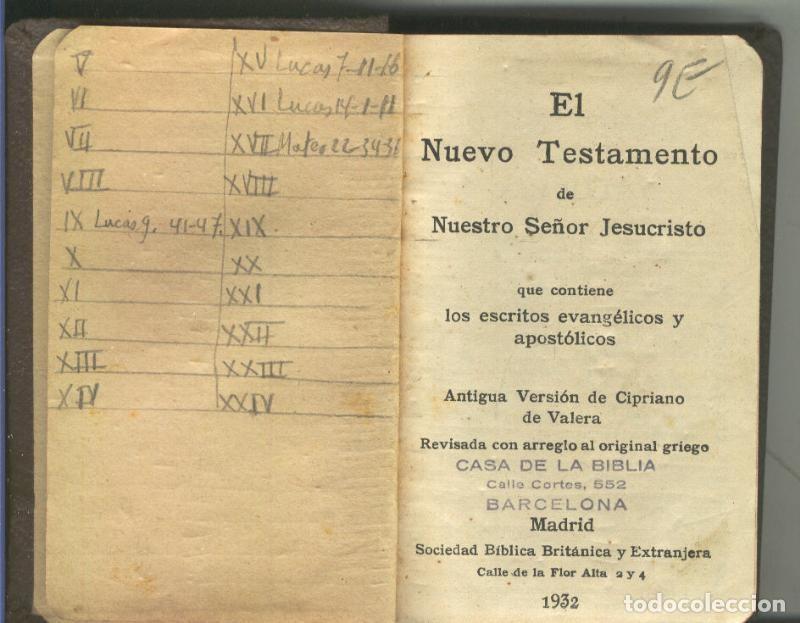 V
VI
VII
VIII
IX Lucas 9. 41-47.
X
XI
XII
XIII
XIV
XV Lucas 7-11-16
XVI Lucas 14-1-11
XVII Mateo 22-34-
XVIII
XIX
XX
XXI
XXII
XXIII
XXIV
El
Nuevo Testamento
de
Nuestro Señor Jesucristo
que contiene
los escritos evangélicos y
apostólicos
Antigua Versión de Cipriano
de Valera
Revisada con arreglo al original griego
CASA DE LA BIBLIA
Calle Cortes, 552
BARCELONA
Madrid
Sociedad Bíblica Británica y Extranjera
Calle de la Flor Alta 2 y 4
1932
todocoleccion